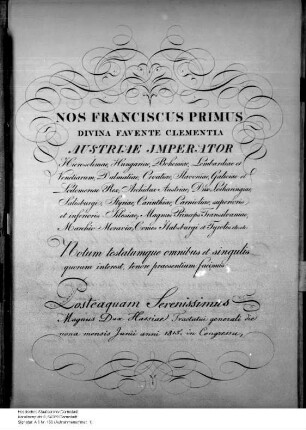 NOS FRANCISCUS PRIMUS
DIVINA FAVENTE CLEMENTIA
AUSTRIAE IMPERATOR
Hierosolimae, Hungariae, Bohemiae, Lombardiae et
Venetiarum, Dalmatiae, Croatiae, Slavoniae, Galiciae et
Lodomeriae Rex, Archidux Austriae, Dux Lotharingiae,
Salisburgi, Styriae, Carinthiae, Carnioliae, superioris
et inferioris Silesiae, Magnus Princeps Transilvaniae,
Marchio Moraviae, Comes Habsburgi et Tyrolis
Notum testatumque omnibus et singulis
quorum interest, tenore praesentium facimus
Posteaquam Serenissimus
Magnus Dux Hassiae Tractatui generali die
nona mensis Junii anni 1815. in Congressu,